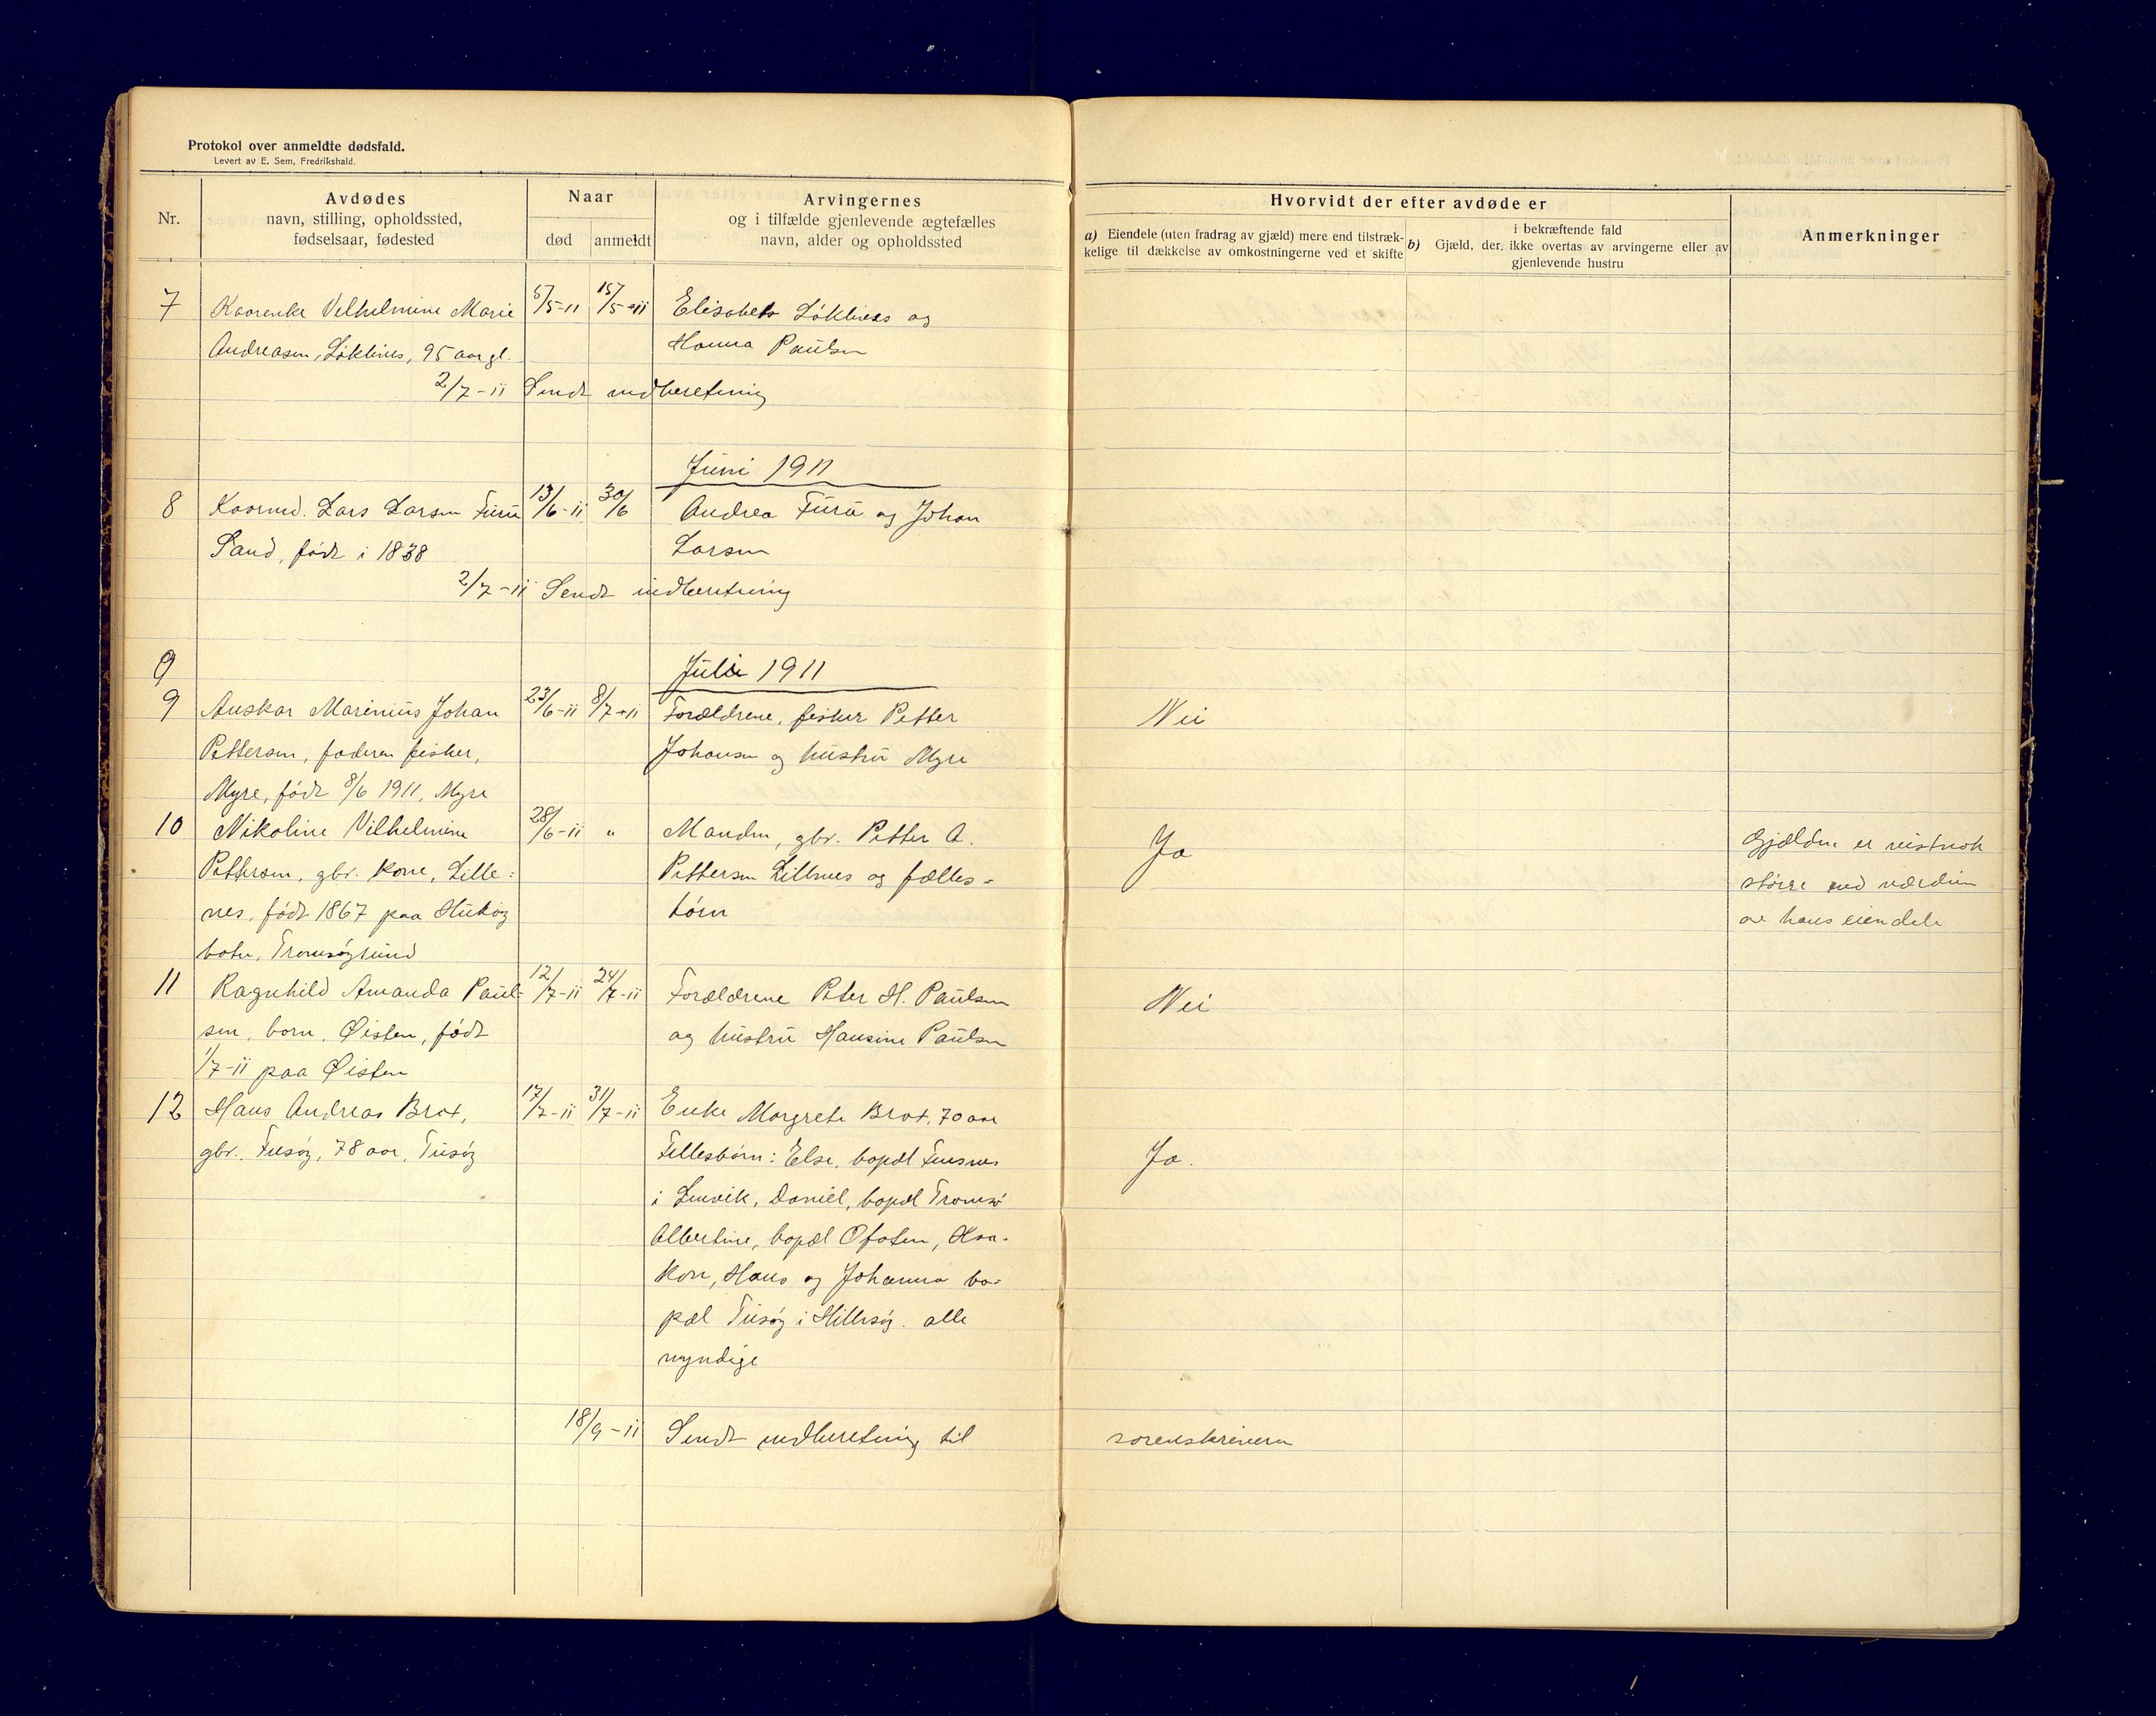 Protokol over anmeldte dødsfald.
Levert av E. Sem, Fredrikshald.
Nr.
Avdødes
navn, stilling, opholdssted,
fødselsaar, fødested
Naar
død
anmeldt
Arvingernes
og i tilfælde gjenlevende ægtefælles
navn, alder og opholdssted
Hvorvidt der efter avdøde er
a) Eiendele (uten fradrag av gjæld) mere end tilstræk-
kelige til dækkelse av omkostningerne ved et skifte
b)
i bekræftende fald
Gjæld, der, ikke overtas av arvingerne eller av
gjenlevende hustru
Anmerkninger
7 Kaarenke Vilhelmine Marie 5/5-11 15/5-11 Elisabet Løklines og
Andreasen, Løklines, 95 aar gl. Hanna Paulsen
2/7-11 Sendt indberetning
Juni 1911
8 Kaarmd. Lars Larsen Furu 13/6-11 30/6 Andrea Furu og Johan
Sand, født i 1838 Larsen
2/7-11 Sendt indberetning
9 Juli 1911
9 Auskar Marinius Johan 23/6-11 8/7-11 Forældrene, fisker Petter Nei
Pettersen, faderen fisker, Johansen og hustru Myre
Myre, født 8/6 1911, Myre
10 Nikoline Vilhelmine 28/6-11 " Manden, gbr. Petter A. Ja Gjælden er vistnok
Pettersen, gbr. kone, Lille- Pettersen Lillenes og fælles- større end værdien
nes, født 1867 paa børn av hans eiendele
botn, Tromsøysund
11 Ragnhild Amanda Paul- 12/7-11 24/7-11 Forældrene Peter H. Paulsen Nei
sen, barn, Øisten, født og hustru Hansine Paulsen
1/7-11 paa Øisten
12 Hans Andreas Brox, 17/7-11 31/7-11 Enke Margrete Brox, 70 aar
gbr., Tusøy, 78 aar, Tusøy Fellesbørn: Else, bopæl Finsnes Ja.
i Lenvik, Daniel, bopæl Tromsø
Albertine, bopæl Ofoten, Haa-
kon, Hans og Johanna bo-
pæl Tusøy i Hillesøy. alle
myndige
18/9-11 Sendt indberetning til sorenskriveren